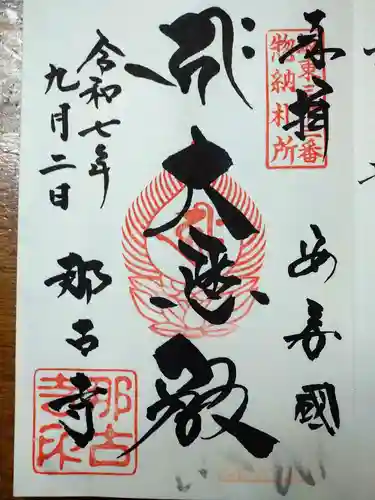 奉拝
坂東三十三番
惣納札所
安房國
大悲殿
令和七年
九月二日
那古寺
那古
寺印